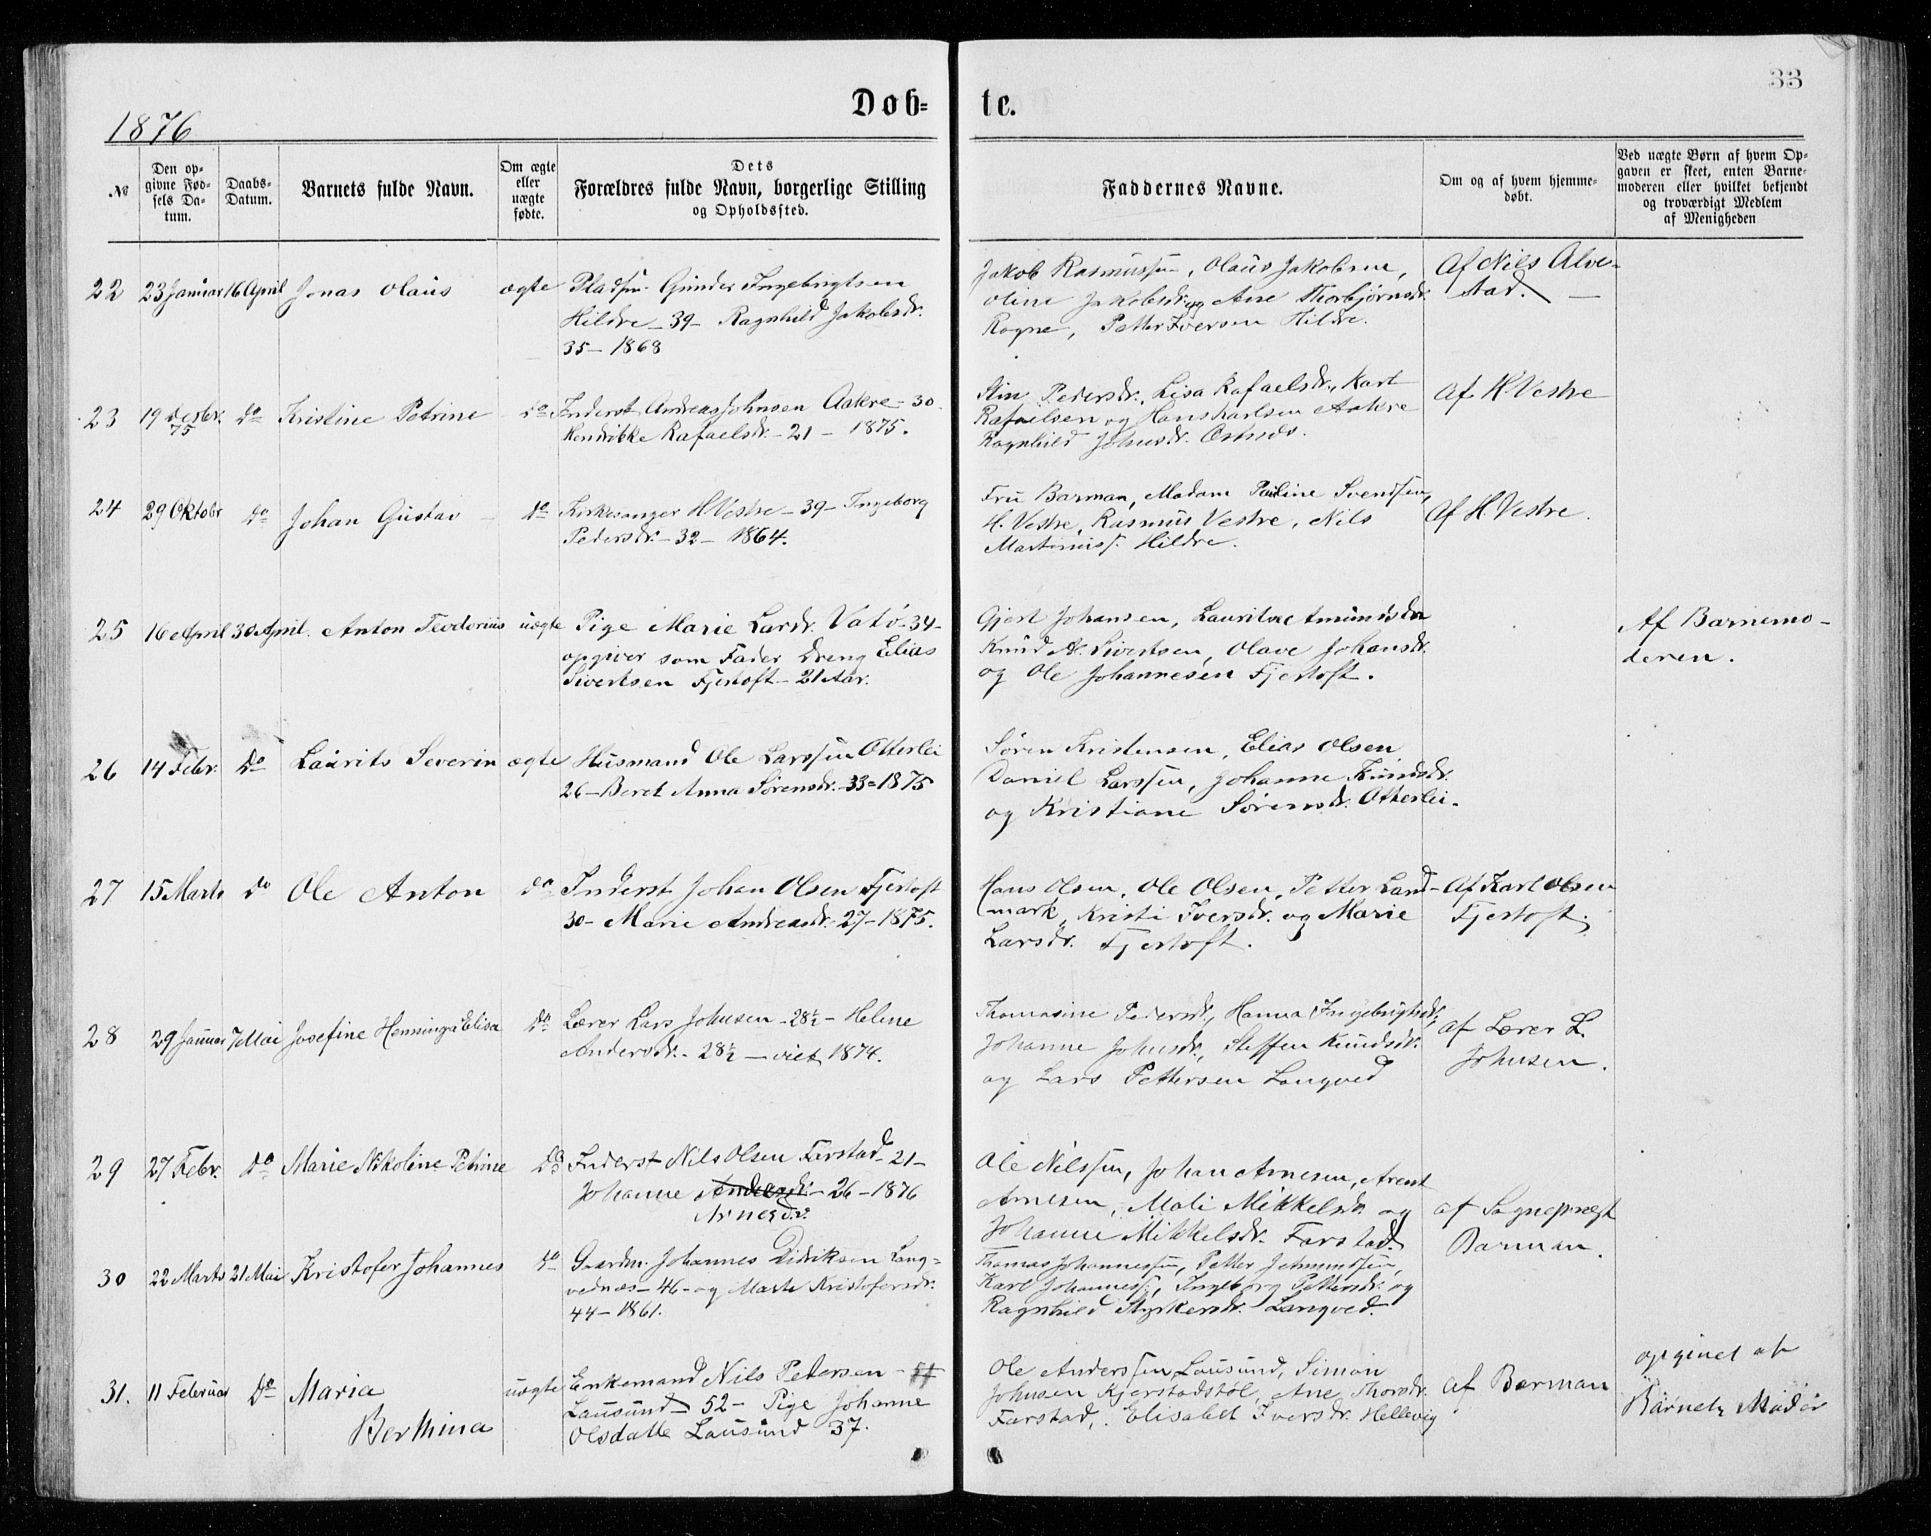 33
Døb= te.
1876
№
Den op=
givne Fød=
sels Da=
tum.
Daabs=
Datum.
Barnets fulde Navn.
Om ægte
eller
uægte
fødte.
Dets
Forældres fulde Navn, borgerlige Stilling
og Opholdssted.
Faddernes Navne.
Om og af hvem hjemme=
døbt.
Ved uægte Børn af hvem Op=
gaven er skeet, enten Barne=
moderen eller hvilket bekjendt
og troværdigt Medlem
af Menigheden
22 23 Januar 16 April Jonas Olaus ægte Pladsm. Gunder Ingebrigtsen
Hildre - 39 - Ragnhild Jakobsdr.
35 - 1868
Jakob Rasmussen, Olaus Jakobsen,
Oline Jakobsdr. og Ane Thorbjørnsdr.
Rogne, Petter Iversen Hildre.
Af Nils Alve-
stad. -
23 19 Desbr. 75 Do Kristine Petrine do Inderst Andreas Johnsen Aakre - 30
Hendrikke Rafaelsdr. - 21 - 1875.
Pedersdr., Lisa Rafaelsdr., Karl
Rafaelsen og Hans Karlsen Aakre
Ragnhild Johnsdr.
Af H. Vestre
24 29 Oktobr Do Johan Gustav - do Kirkesanger H. Vestre - 39 - Ingeborg
Pedersdr. - 32 - 1864.
Fru Barman, Madam Pauline Svendsen,
H. Vestre, Rasmus Vestre, Nils
Martinuss. Hildre.
Af H. Vestre.
25 16 April 30 April. Anton Teodorius uægte Pige Marie Larsdr. Vatø - 34 -
opgiver som Fader Dreng Elias
Sivertsen Fjertoft - 21 Aar.
Gjert Johansen, Lauritse Amundsdr
Knud A. Sivertsen, Olave Johansdr.
og Ole Johannesen Fjertoft.
Af Barnemo-
deren.
26 14 Febr. Do Laurits Severin ægte Husmand Ole Larssen Otterlei
26 - Beret Anna Sørensdr. - 33 - 1875
Søren Kristensen, Elias Olsen,
Daniel Larssen, Johanne Knudsdr.
og Kristiane Sørensdr. Otterlei.
27 15 Marts Do Ole Anton do Inderst Johan Olsen Fjertoft
30 - Marie Andreasdr. - 27 - 1875.
Hans Olsen, Ole Olsen, Petter Land-
mark, Kristi Iversdr. og Marie
Larsdr. Fjertoft.
Af Karl Olsen
Fjertoft.
28 29 Januar 7 Mai Josefine Henninga Elisa do Lærer Lars Johnsen - 28½ - Helene
Andersdr. - 28½ - viet 1874.
Thomasine Pedersdr., Hanna Ingebrigtsdr.,
Johanne Johnsdr., Steffen Knudsdr.
og Lars Pettersen Longved
af Lærer L.
Johnsen.
29 27 Febr. Do Marie Nikoline Petrine do Inderst Nils Olsen Farstad - 21 -
Johanne Andersdr. - 26 - 1876
Arnesdr.
Ole Nilssen, Johan Arnesen, Arent
Arnesen, Mali Mikkelsdr. og
Johanne Mikkelsdr. Farstad.
af Sognepræst
Barman.
30 22 Marts 21 Mai Kristofer Johannes do Gaardm. Johannes Didriksen Long-
vednæs - 46 - og Marte Kristofersdr.
44 - 1861.
Thomas Johannessen, Petter
Karl Johanness., Ingeborg Pettersdr. og
Ragnhild Styrkersdr. Langved.
31. 11 Februar Do Maria uægte Enkemand Nils Petersen -
Berthina Lausund 52 - Pige Johanne
Olsdatte Lausund 37.
Ole Anderssen Lausund, Simon
Johnsen Kjerstadstøl, Ane Thorsdr.
Farstad, Elisabet Iversdr. Hellevig
af Barman
opgivet af
Barnets Moder